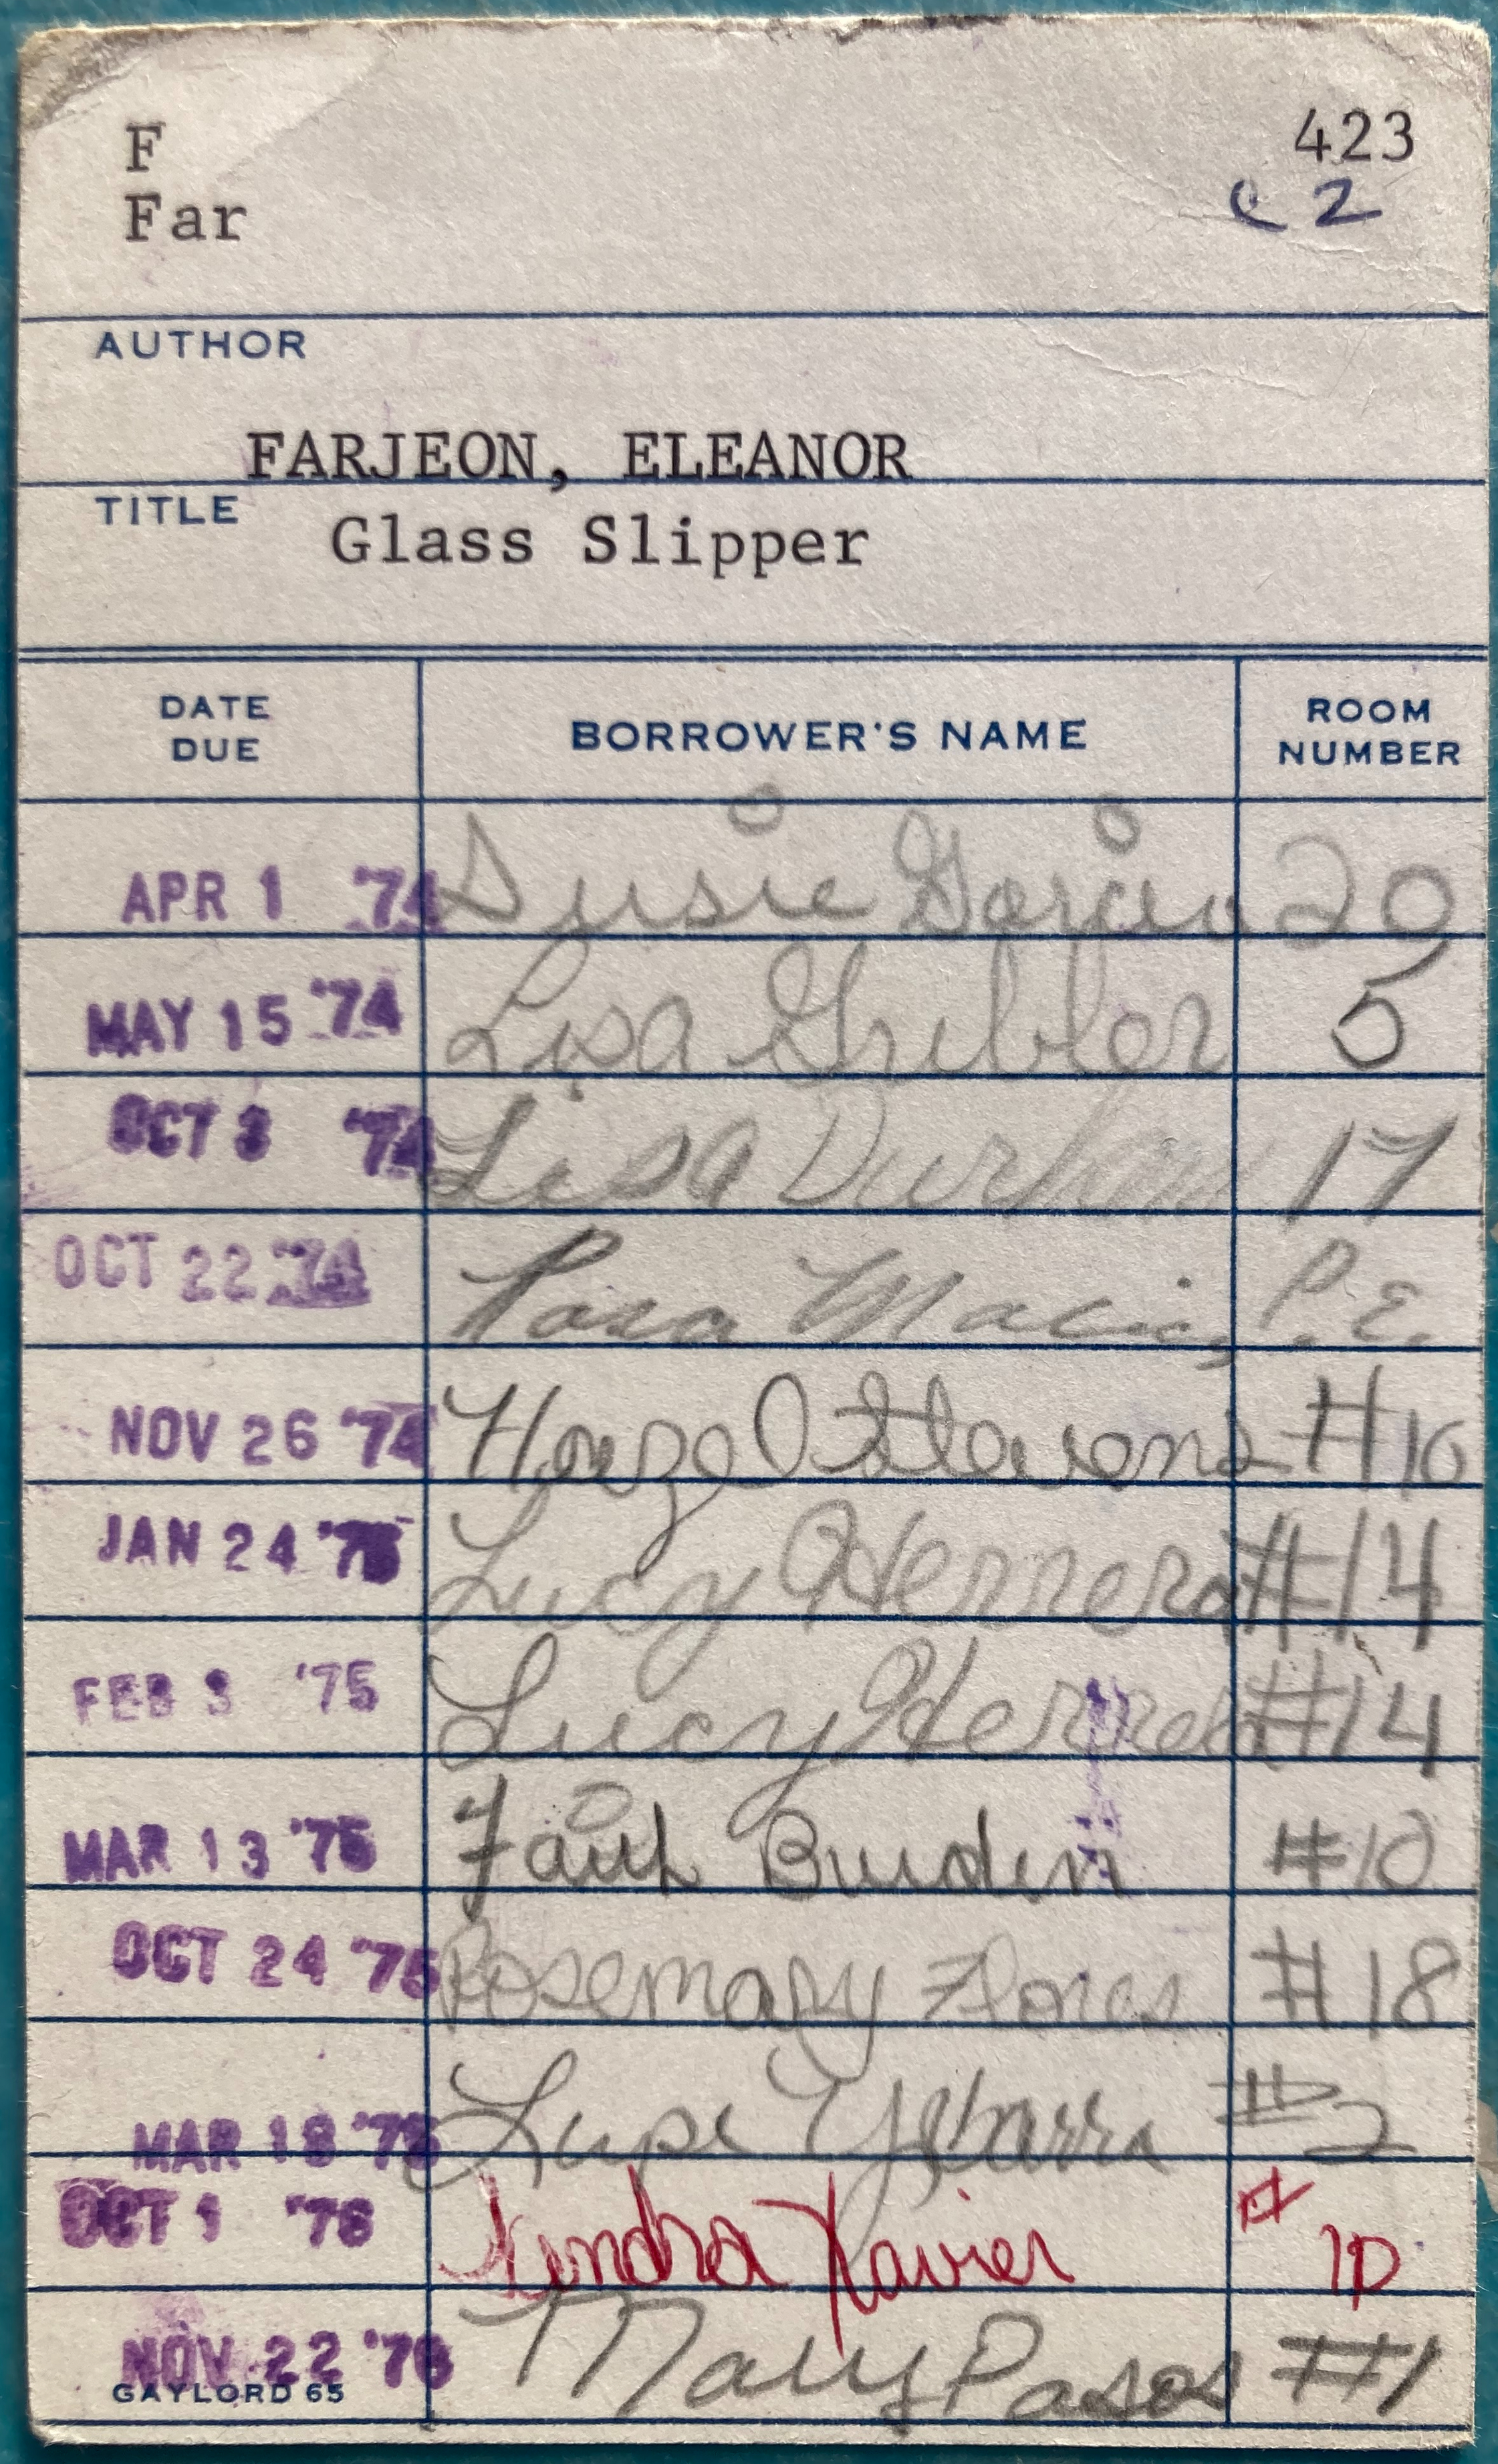 F 423
Far c 2
AUTHOR
FARJEON, ELEANOR
TITLE Glass Slipper
DATE DUE BORROWER'S NAME ROOM NUMBER
APR 1 '74 Susie 20
MAY 15 '74 Lisa 5
OCT 3 '74 Lisa Durham 17
OCT 22 '74 Rosa Macias P.E.
NOV 26 '74 Stevens #10
JAN 24 '75 Lucy Herrera #14
FEB 3 '75 Lucy Herrera #14
MAR 13 '75 Faith Burden #10
OCT 24 '75 Rosemary Flores #18
MAR 18 Lupe Ybarra #2
OCT 1 '76 Kendra Xavier #10
NOV 22 '76 Mary Pasos #1
GAYLORD 65